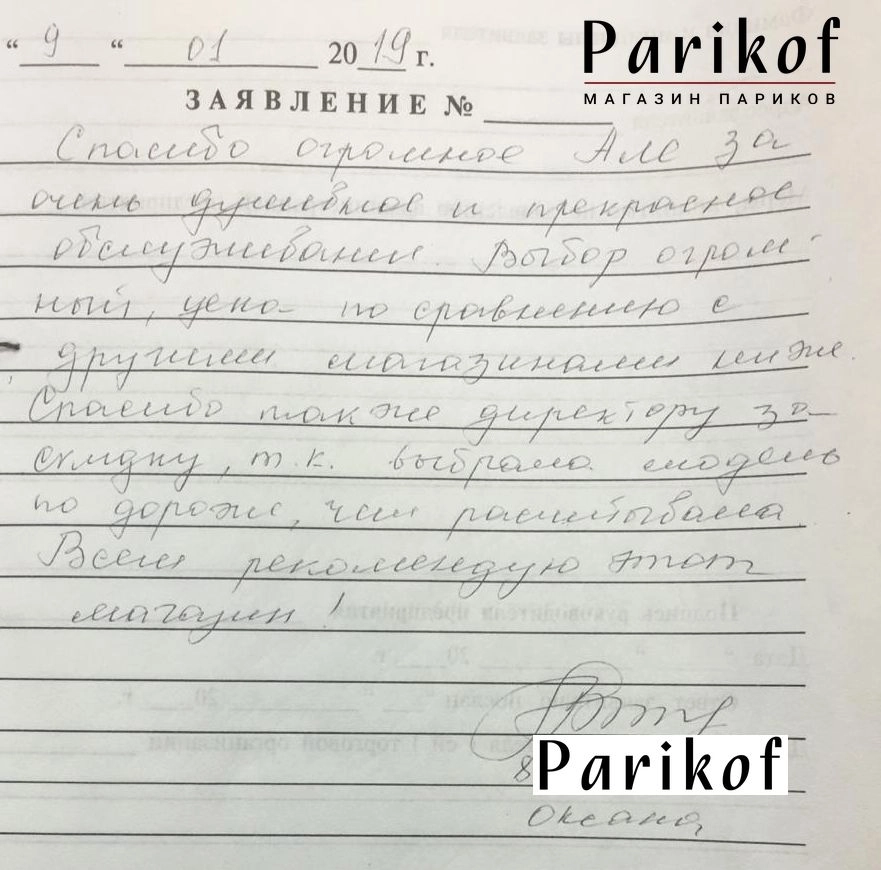 Parikof
МАГАЗИН ПАРИКОВ
“ 9 “ 01 2019 г.
ЗАЯВЛЕНИЕ №
Спасибо огромное Але за
очень душевное и прекрасное
обслуживание. Выбор огром-
ный, цена по сравнению с
другими магазинами ниже.
Спасибо также директору за
скидку, т.к. выбрала модель
по дороже, чем расчитывала.
Всем рекомендую этот
магазин!
8
Parikof
Оксана